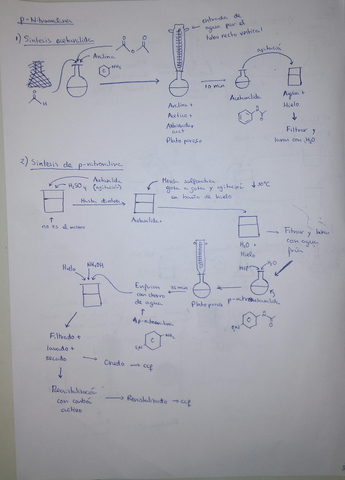 p-Nitroanilina
1) Síntesis acetanilida
entrada de
agua por el
tubo recto vertical
Anilina
NH₂
H
Anilina +
Acético +
acet
Placa
10 min
agitación
Acetanilida
Agua +
Hielo
Filtrar y
lavar con H₂O
2) Síntesis de p-nitroanilina
Acetanilida
H₂SO₄ (agitación)
Hasta
no es el mismo
Mezcla sulfonítrica
gota a gota y agitación
en baño de hielo
↓ 10°C
Acetanilida +
H₂O +
Hielo
Filtrar y lavar
con agua
fría
H₂O
Hielo
NH₄OH
Enfriar
con chorro
de agua
15 min
p-nitroanilina
NH₂
Filtrado +
lavado +
secado
Crudo → ccf
Recristalización
con carbón
activo
Recristalizado → ccf